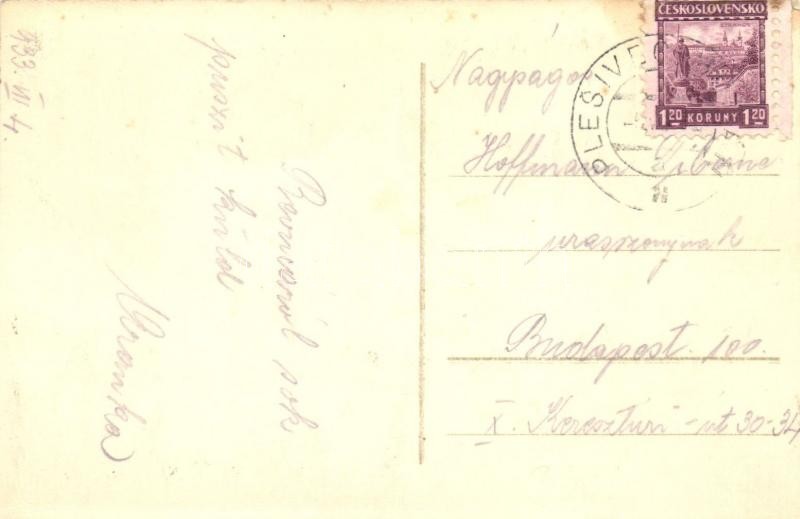 933. VII 4.
Rozsnyóról sok
puszit küld
Bronka
ČESKOSLOVENSKO
1 20 KORUNY 1 20
PLEŠIVEC
Nagyságos
Hoffmann Giborne
uraszonynak
Budapest. 100.
X. Kereszturi-út 30-34